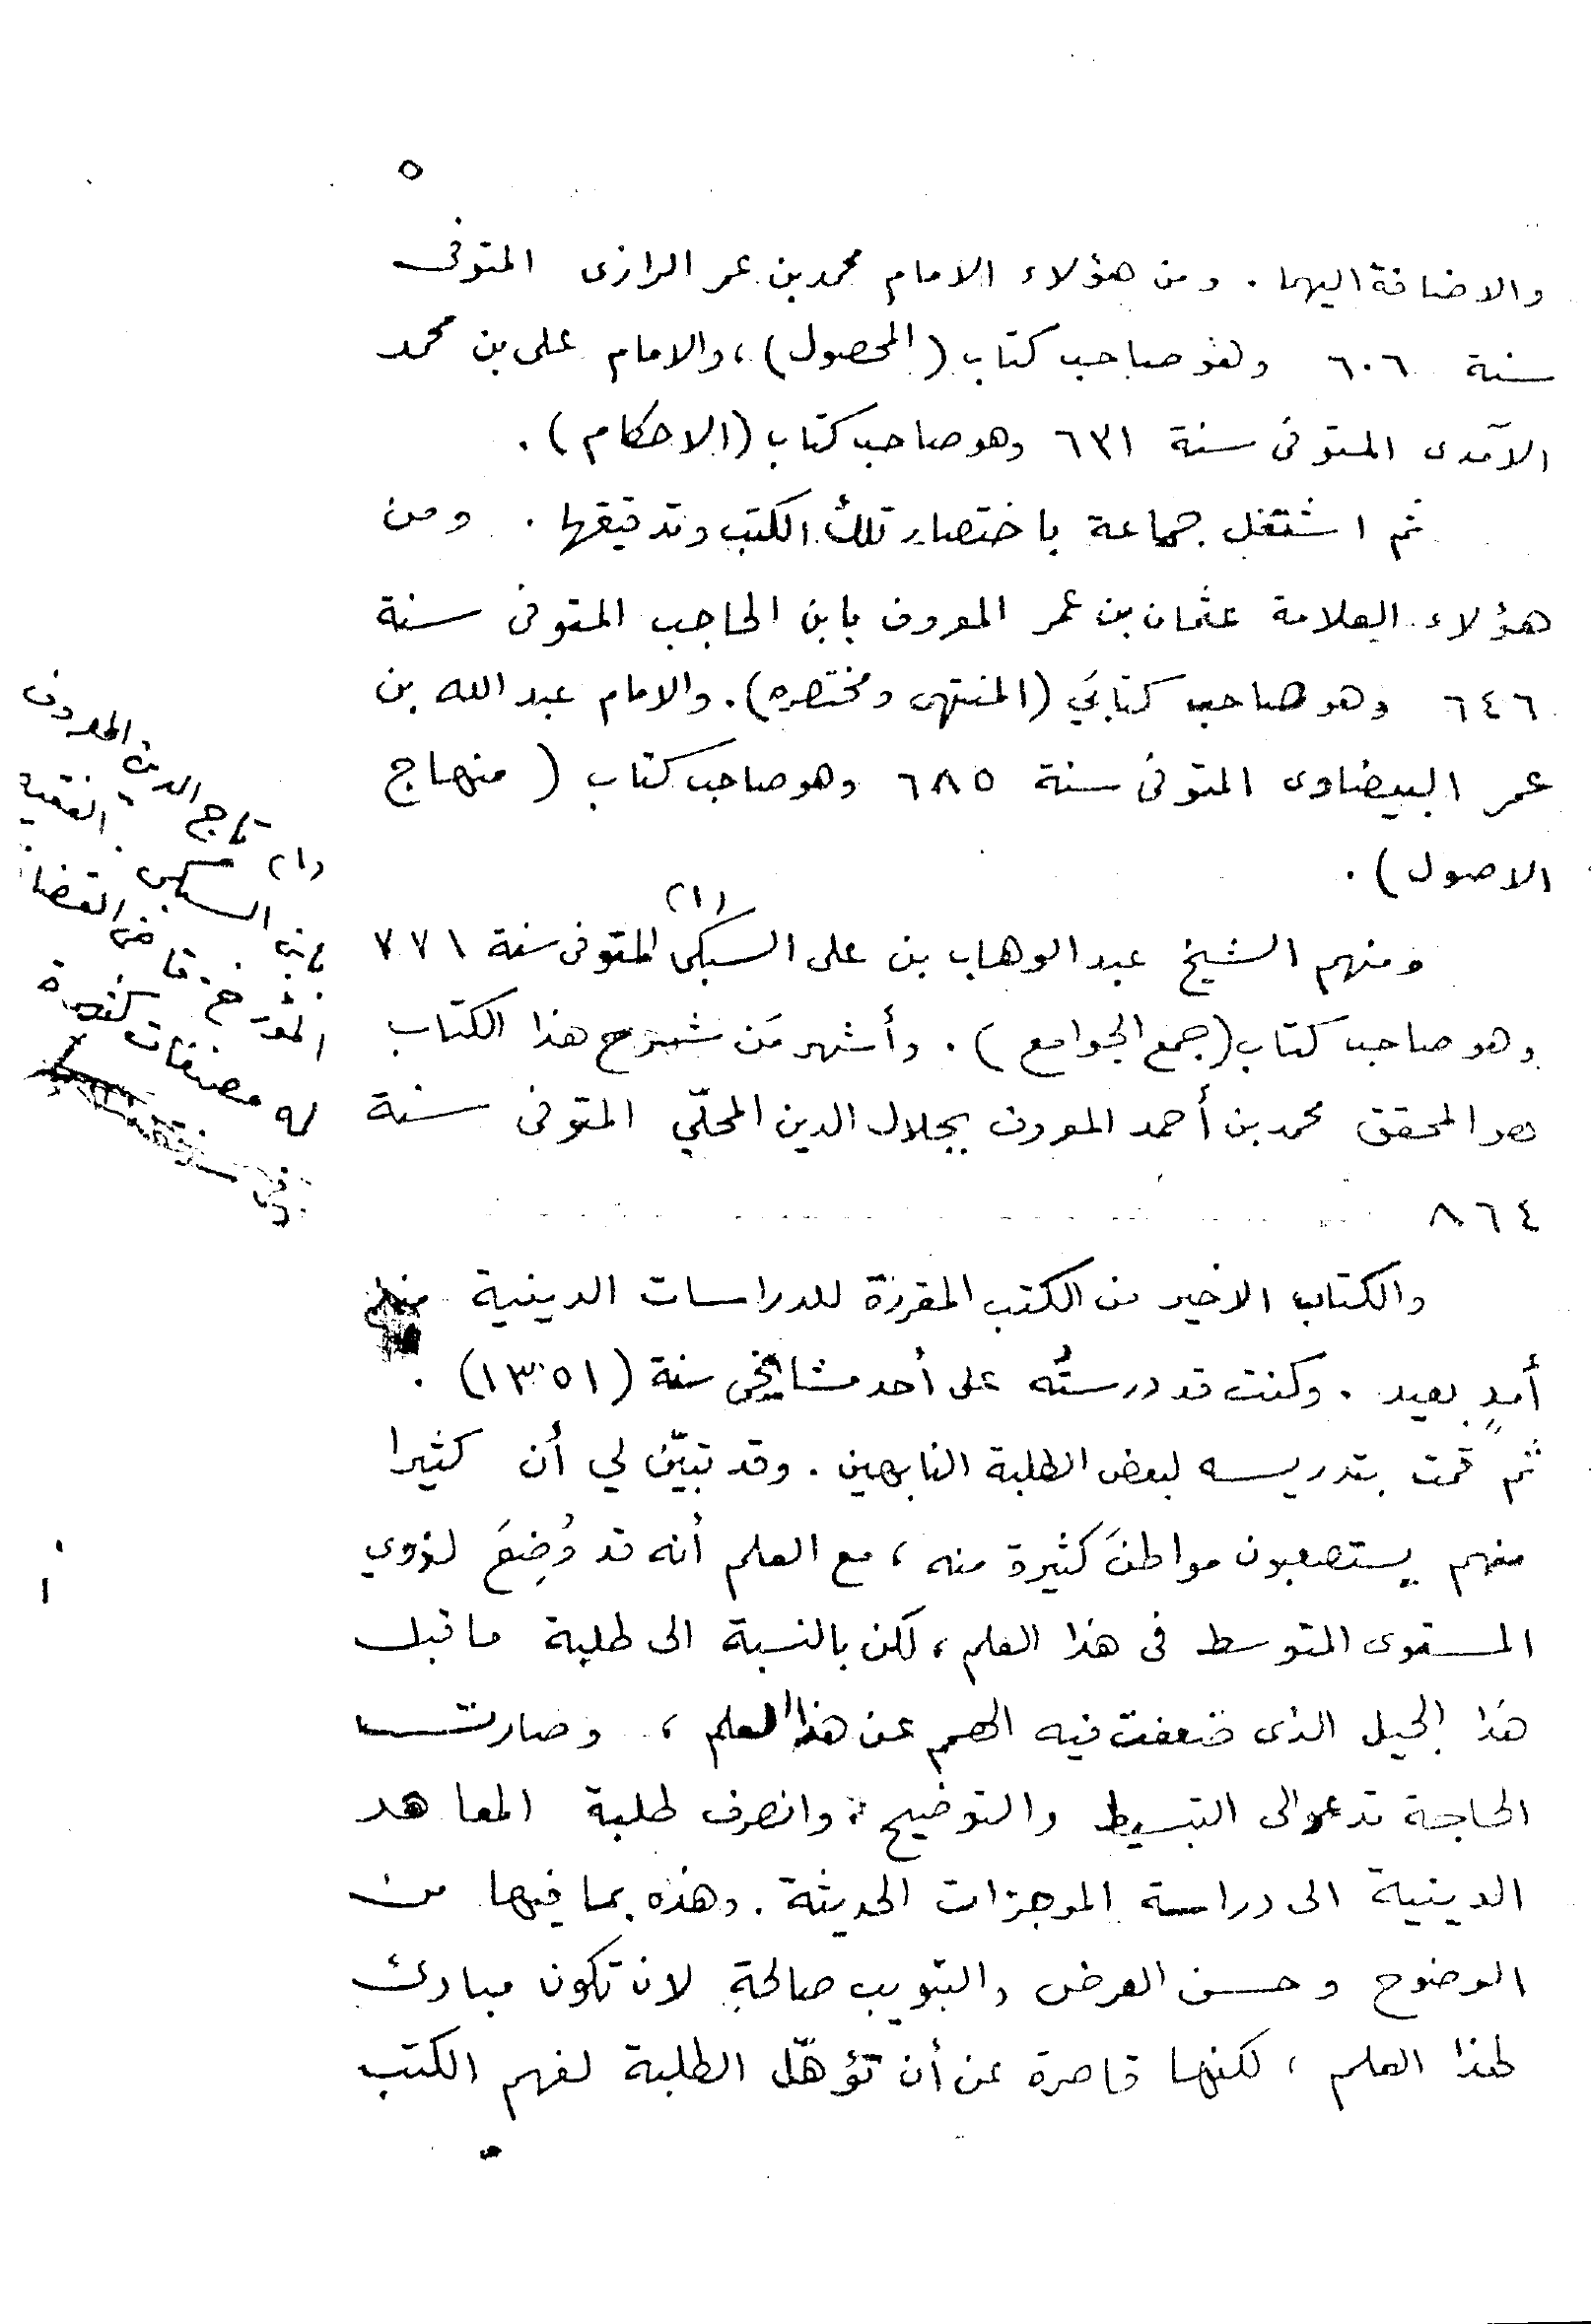 ٥
والاضافة اليها. ومن هؤلاء الامام محمد بن عمر الرازى المتوفى
سنة ٦٠٦ وهو صاحب كتاب (المحصول)، والامام على بن محمد
الآمدى المتوفى سنة ٦٣١ وهو صاحب كتاب (الاحكام).
ثم اشتغل جماعة باختصار تلك الكتب وتدقيقها. ومن
هؤلاء العلامة عثمان بن عمر المعروف بابن الحاجب المتوفى سنة
٦٤٦ وهو صاحب كتابَي (المنتهى ومختصره). والامام عبد الله بن
عمر البيضاوى المتوفى سنة ٦٨٥ وهو صاحب كتاب (منهاج
الاصول).
ومنهم الشيخ عبد الوهاب بن على السبكى (١) المتوفى سنة ٧٧١
وهو صاحب كتاب (جمع الجوامع). وأشهر مَن شرح هذا الكتاب
هو المحقق محمد بن أحمد المعروف بجلال الدين المحلّي المتوفى سنة
٨٦٤
والكتاب الاخير من الكتب المقررة للدراسات الدينية منذ
أمدٍ بعيد. وكنت قد درستُه على أحد مشايخى سنة (١٣٥١).
ثم قمت بتدريسه لبعض الطلبة النابهين. وقد تبيّن لي أن كثيرا
منهم يستصعبون مواطنَ كثيرة منه، مع العلم أنه قد وُضِعَ لذوي
المستوى المتوسط فى هذا العلم، لكن بالنسبة الى طلبة ما قبل
هذا الجيل الذى ضعفت فيه الهمم عن هذا العلم، وصارت
الحاجة تدعو الى التبسيط والتوضيح، وانصرف طلبة المعاهد
الدينية الى دراسة الموجزات الحديثة. وهذه بما فيها من
الوضوح وحسن العرض والتبويب صالحة لان تكون مبادئ
لهذا العلم، لكنها قاصرة عن أن تؤهّل الطلبة لفهم الكتب
(١) تاج الدين المعروف
بابن السبكى. الفقيه
المؤرخ قاضى القضاة
له مصنفات كثيرة